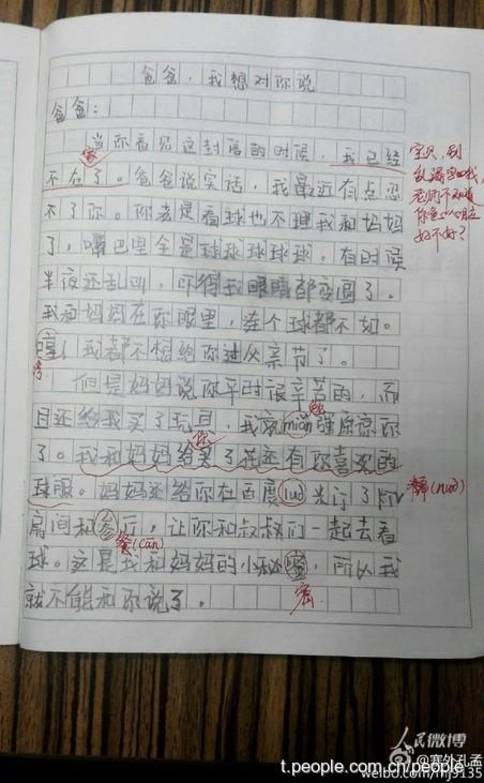 爸爸，我想对你说
爸爸：
当你看见这封信的时候，我已经
家
不在了。爸爸说实话，我最近有点忍
不了你。你老是看球也不理我和妈妈
了，嘴巴里全是球球球球球，有时候
半夜还乱叫，吓得我眼睛都变圆了。
我和妈妈在你眼里，连个球都不如。
哼！我都不想给你过父亲节了。
但是妈妈说你平时很辛苦的，而
且还给我买了玩具，我就mián强原谅你
勉
你
了。我和妈妈给买了花还有你喜欢的
球服。妈妈还给你在百度luó米订了KTV
房间和参厅，让你和叔叔们一起去看
餐(cān)
球。这是我和妈妈的小秘蜜，所以我
密
就不能和你说了。
宝贝，别
好不好？
糯(nuò)
人民微博
@塞外孔孟
t.people.com.cn/people